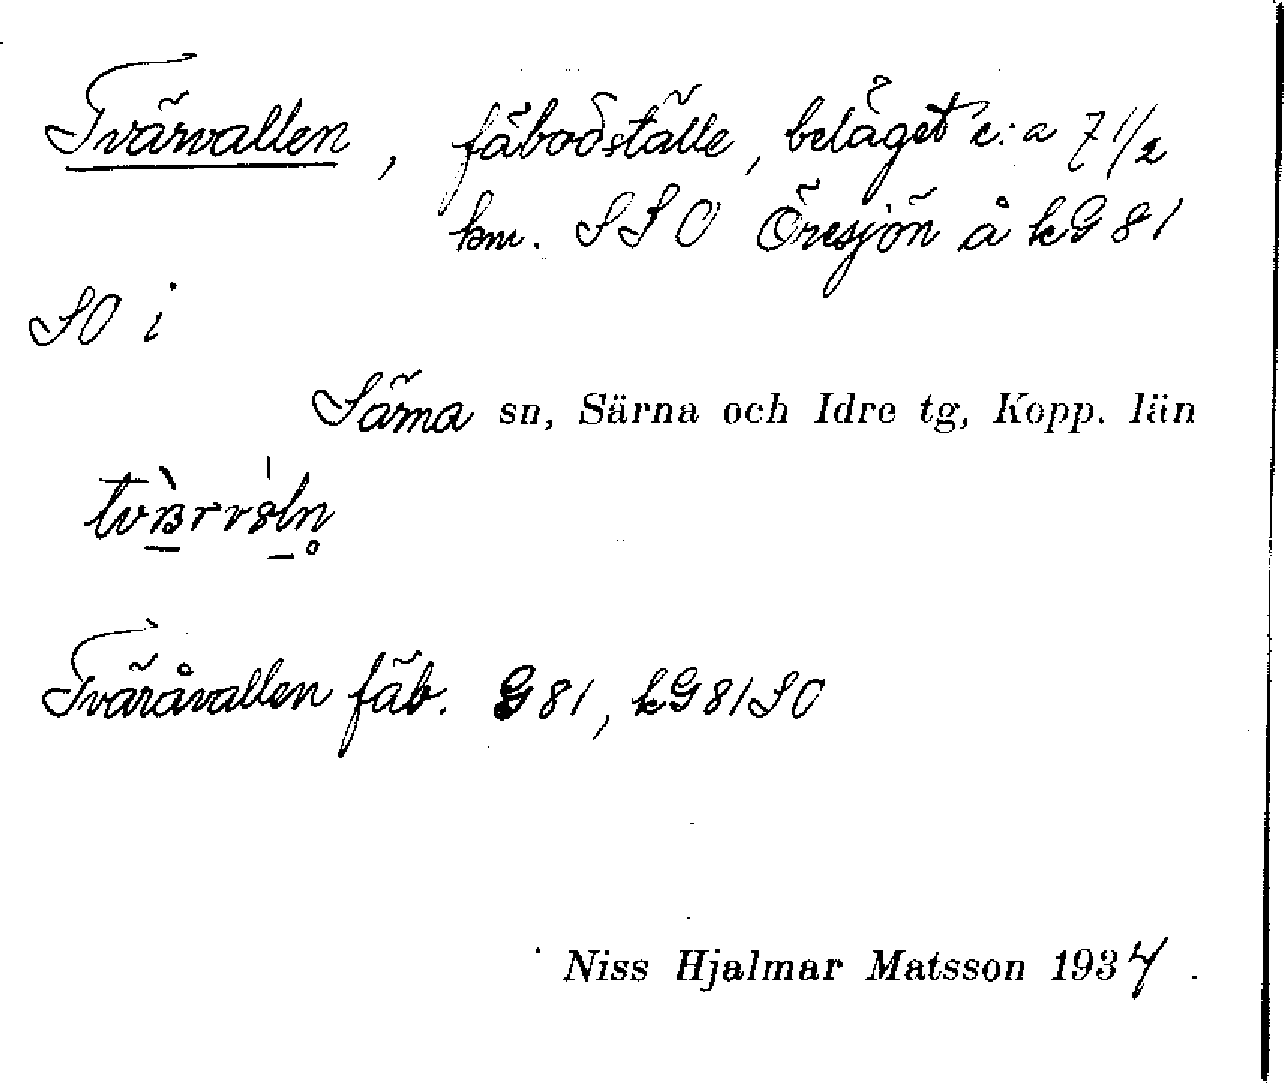 Tvärvallen, fäbodställe, beläget c:a 7 1/2
km. SSO Öresjön å kG 81
SO i
Särna sn, Särna och Idre tg, Kopp. län
Tväråvallen fäb. G81, kG81SO
Niss Hjalmar Matsson 1934.